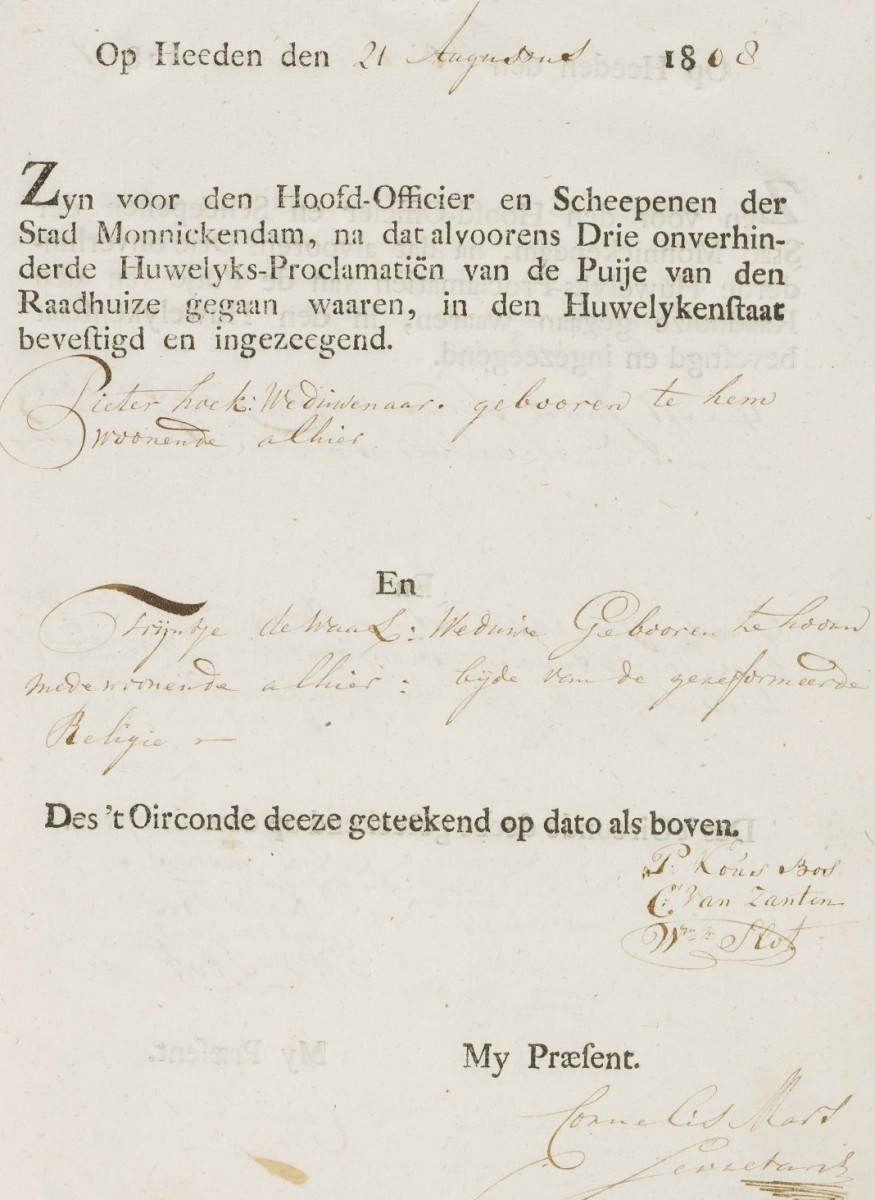 Op Heeden den 21 Augustus 1808
Zyn voor den Hoofd-Officier en Scheepenen der
Stad Monnickendam, na dat alvoorens Drie onverhin-
derde Huwelyks-Proclamatiën van de Puije van den
Raadhuize gegaan waaren, in den Huwelykenſtaat
beveſtigd en ingezeegend.
Pieter hoek: Weduwenaar. gebooren te hem
woonende alhier
En
Trijntje de Waal: Weduwe Gebooren te hoorn
mede woonende alhier: bijde van de gereformeerde
Religie —
Des 't Oirconde deeze geteekend op dato als boven.
P. Kous Bos
C. Van Zanten
Wm Slot
My Præſent.
Cornelis Mars
Secretaris